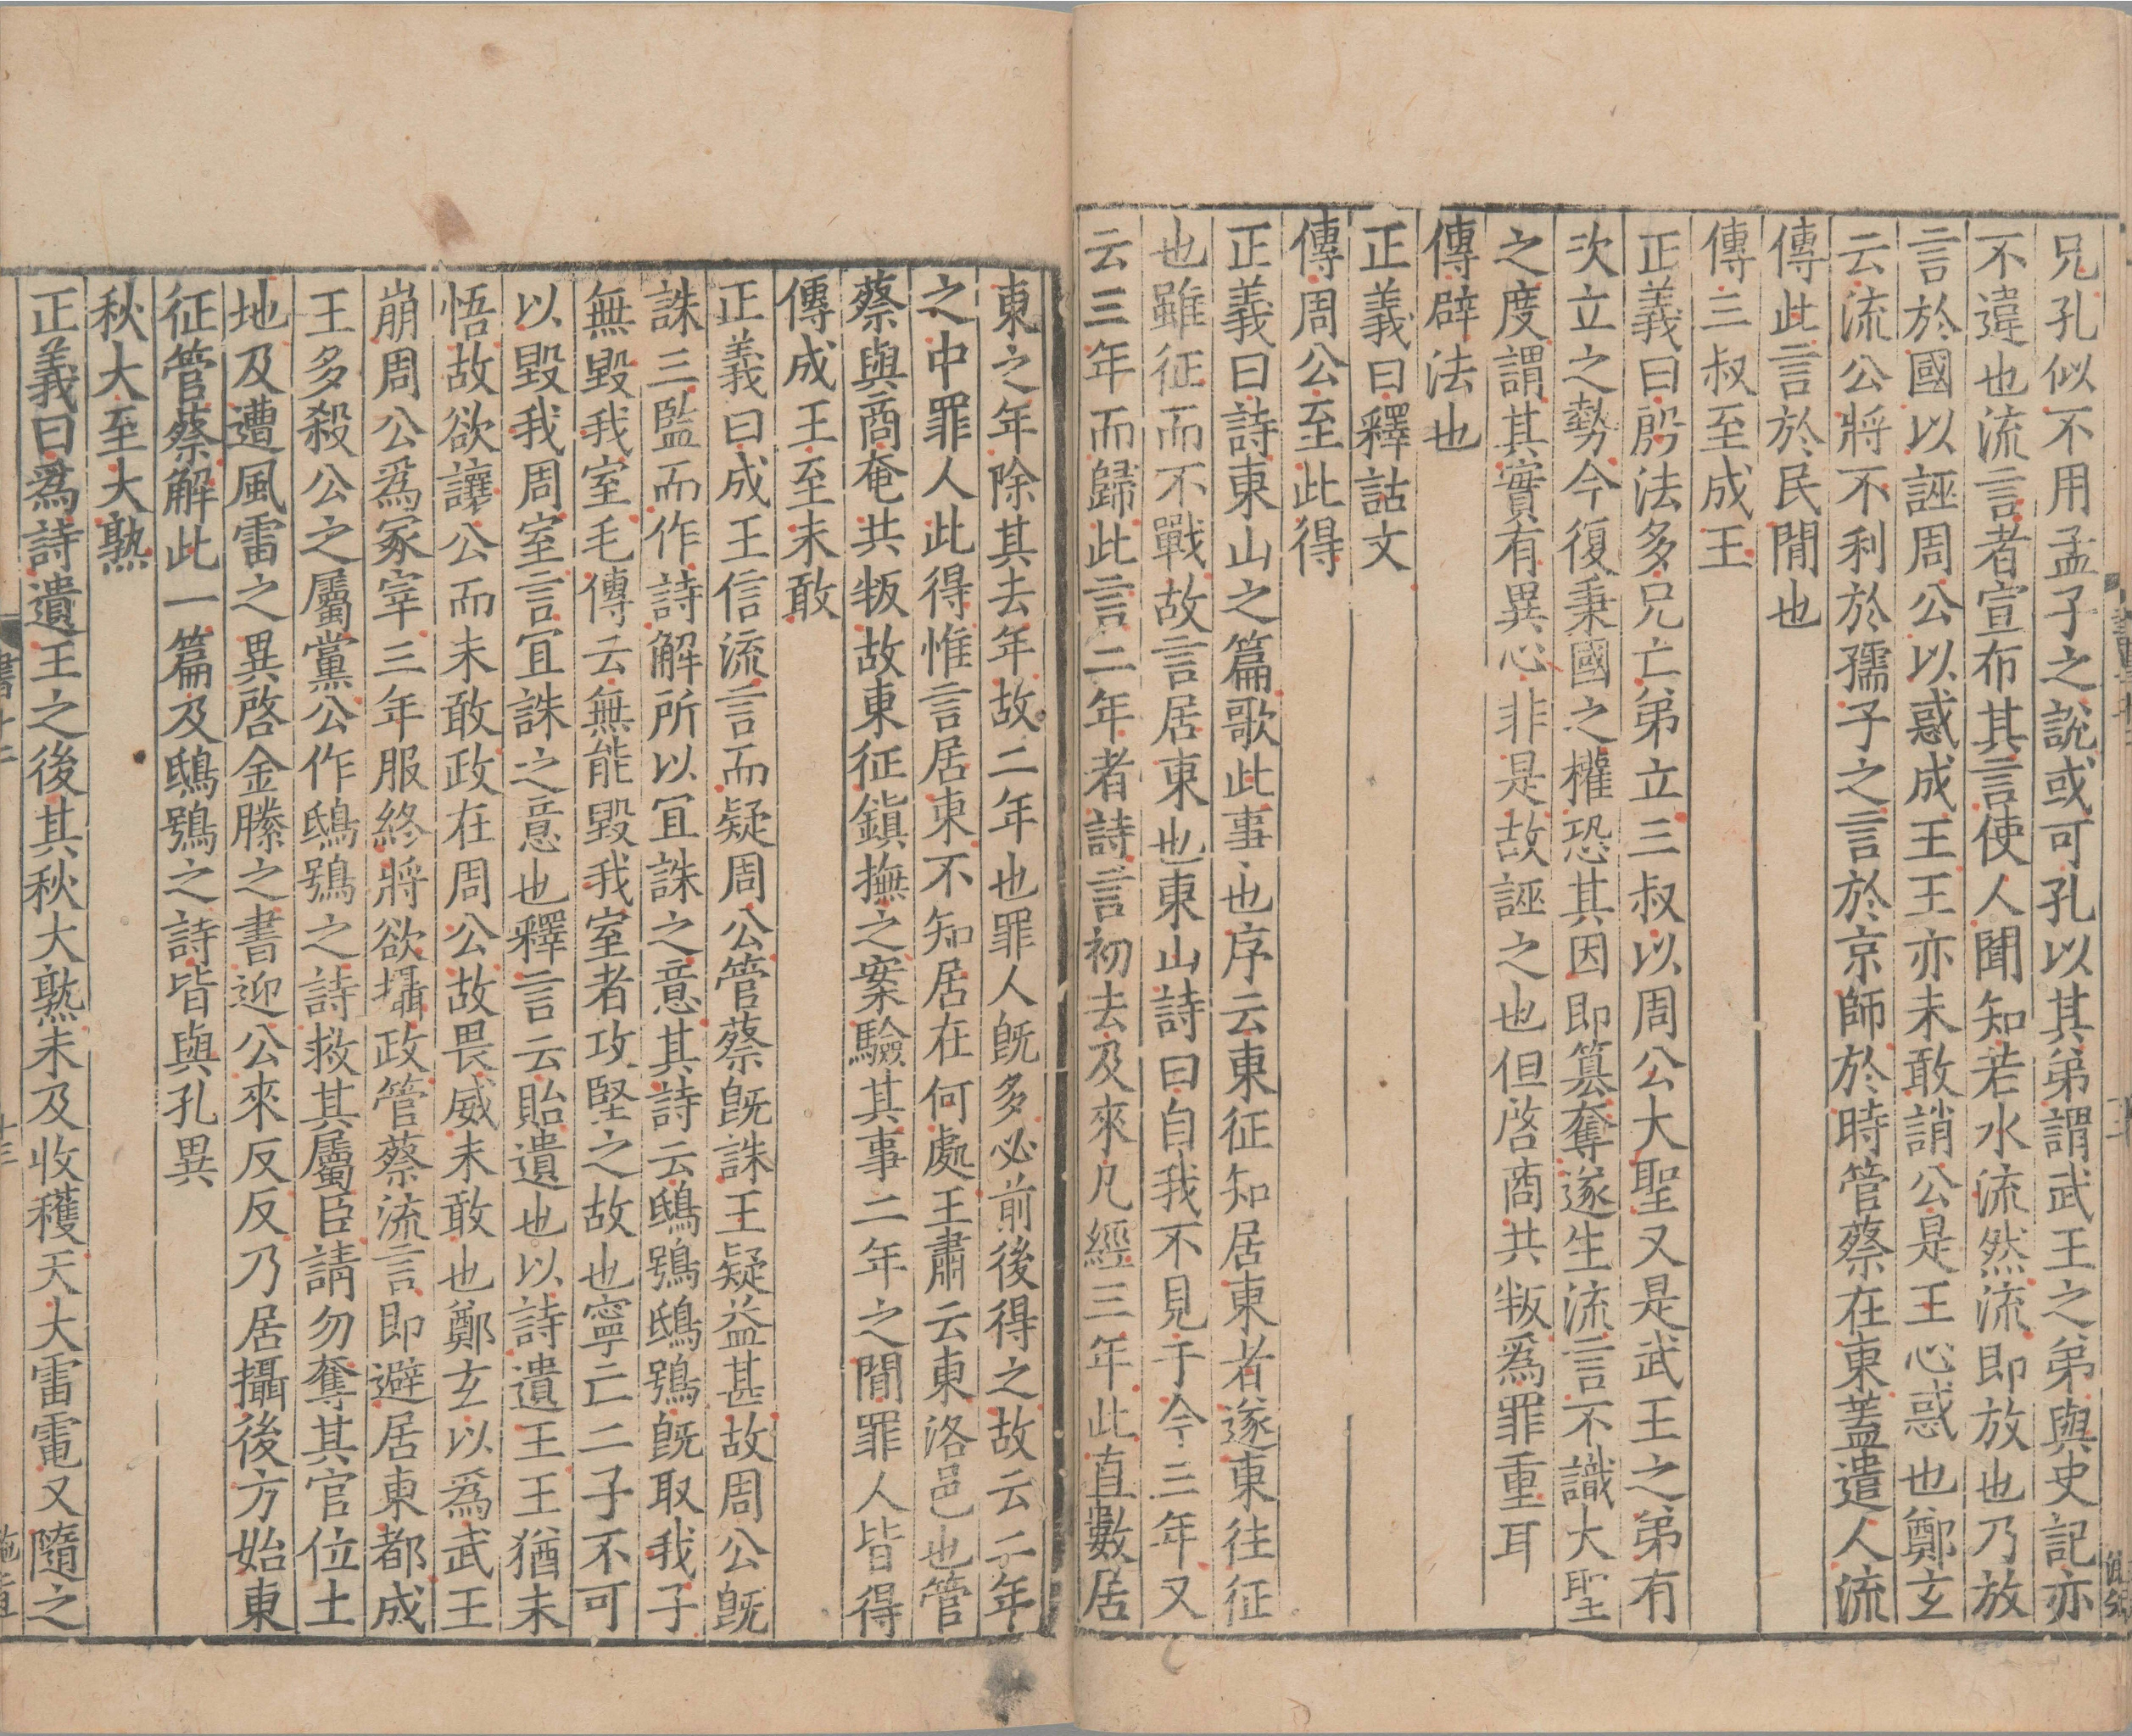 兄孔似不用孟子之說或可孔以其弟謂武王之弟與史記亦
不違也流言者宣布其言使人聞知若水流然流即放也乃放
言於國以誣周公以惑成王王亦未敢誚公是王心惑也鄭玄
云流公將不利於孺子之言於京師於時管蔡在東蓋遣人流
傳此言於民閒也
傳三叔至成王
正義曰殷法多兄亡弟立三叔以周公大聖又是武王之弟有
次立之勢今復秉國之權恐其因即篡奪遂生流言不識大聖
之度謂其實有異心非是故誣之也但啓商共叛爲罪重耳
傳辟法也
正義曰釋詁文
傳周公至此得
正義曰詩東山之篇歌此事也序云東征知居東者遂東往征
也雖征而不戰故言居東也東山詩曰自我不見于今三年又
云三年而歸此言二年者詩言初去及來凡經三年此直數居
東之年除其去年故二年也罪人既多必前後得之故云二年
之中罪人此得惟言居東不知居在何處王肅云東洛邑也管
蔡與商奄共叛故東征鎮撫之案驗其事二年之閒罪人皆得
傳成王至未敢
正義曰成王信流言而疑周公管蔡既誅王疑益甚故周公既
誅三監而作詩解所以冝誅之意其詩云鴟鴞鴟鴞既取我子
無毀我室毛傳云無能毀我室者攻堅之故也寧亡二子不可
以毀我周室言冝誅之意也釋言云貽遺也以詩遺王王猶未
悟故欲讓公而未敢政在周公故畏威未敢也鄭玄以爲武王
崩周公爲冢宰三年服終將欲攝政管蔡流言即避居東都成
王多殺公之屬黨公作鴟鴞之詩救其屬臣請勿奪其官位土
地及遭風雷之異啓金縢之書迎公來反反乃居攝後方始東
征管蔡解此一篇及鴟鴞之詩皆與孔異
秋大至大熟
正義曰爲詩遺王之後其秋大熟未及收穫天大雷電又隨之